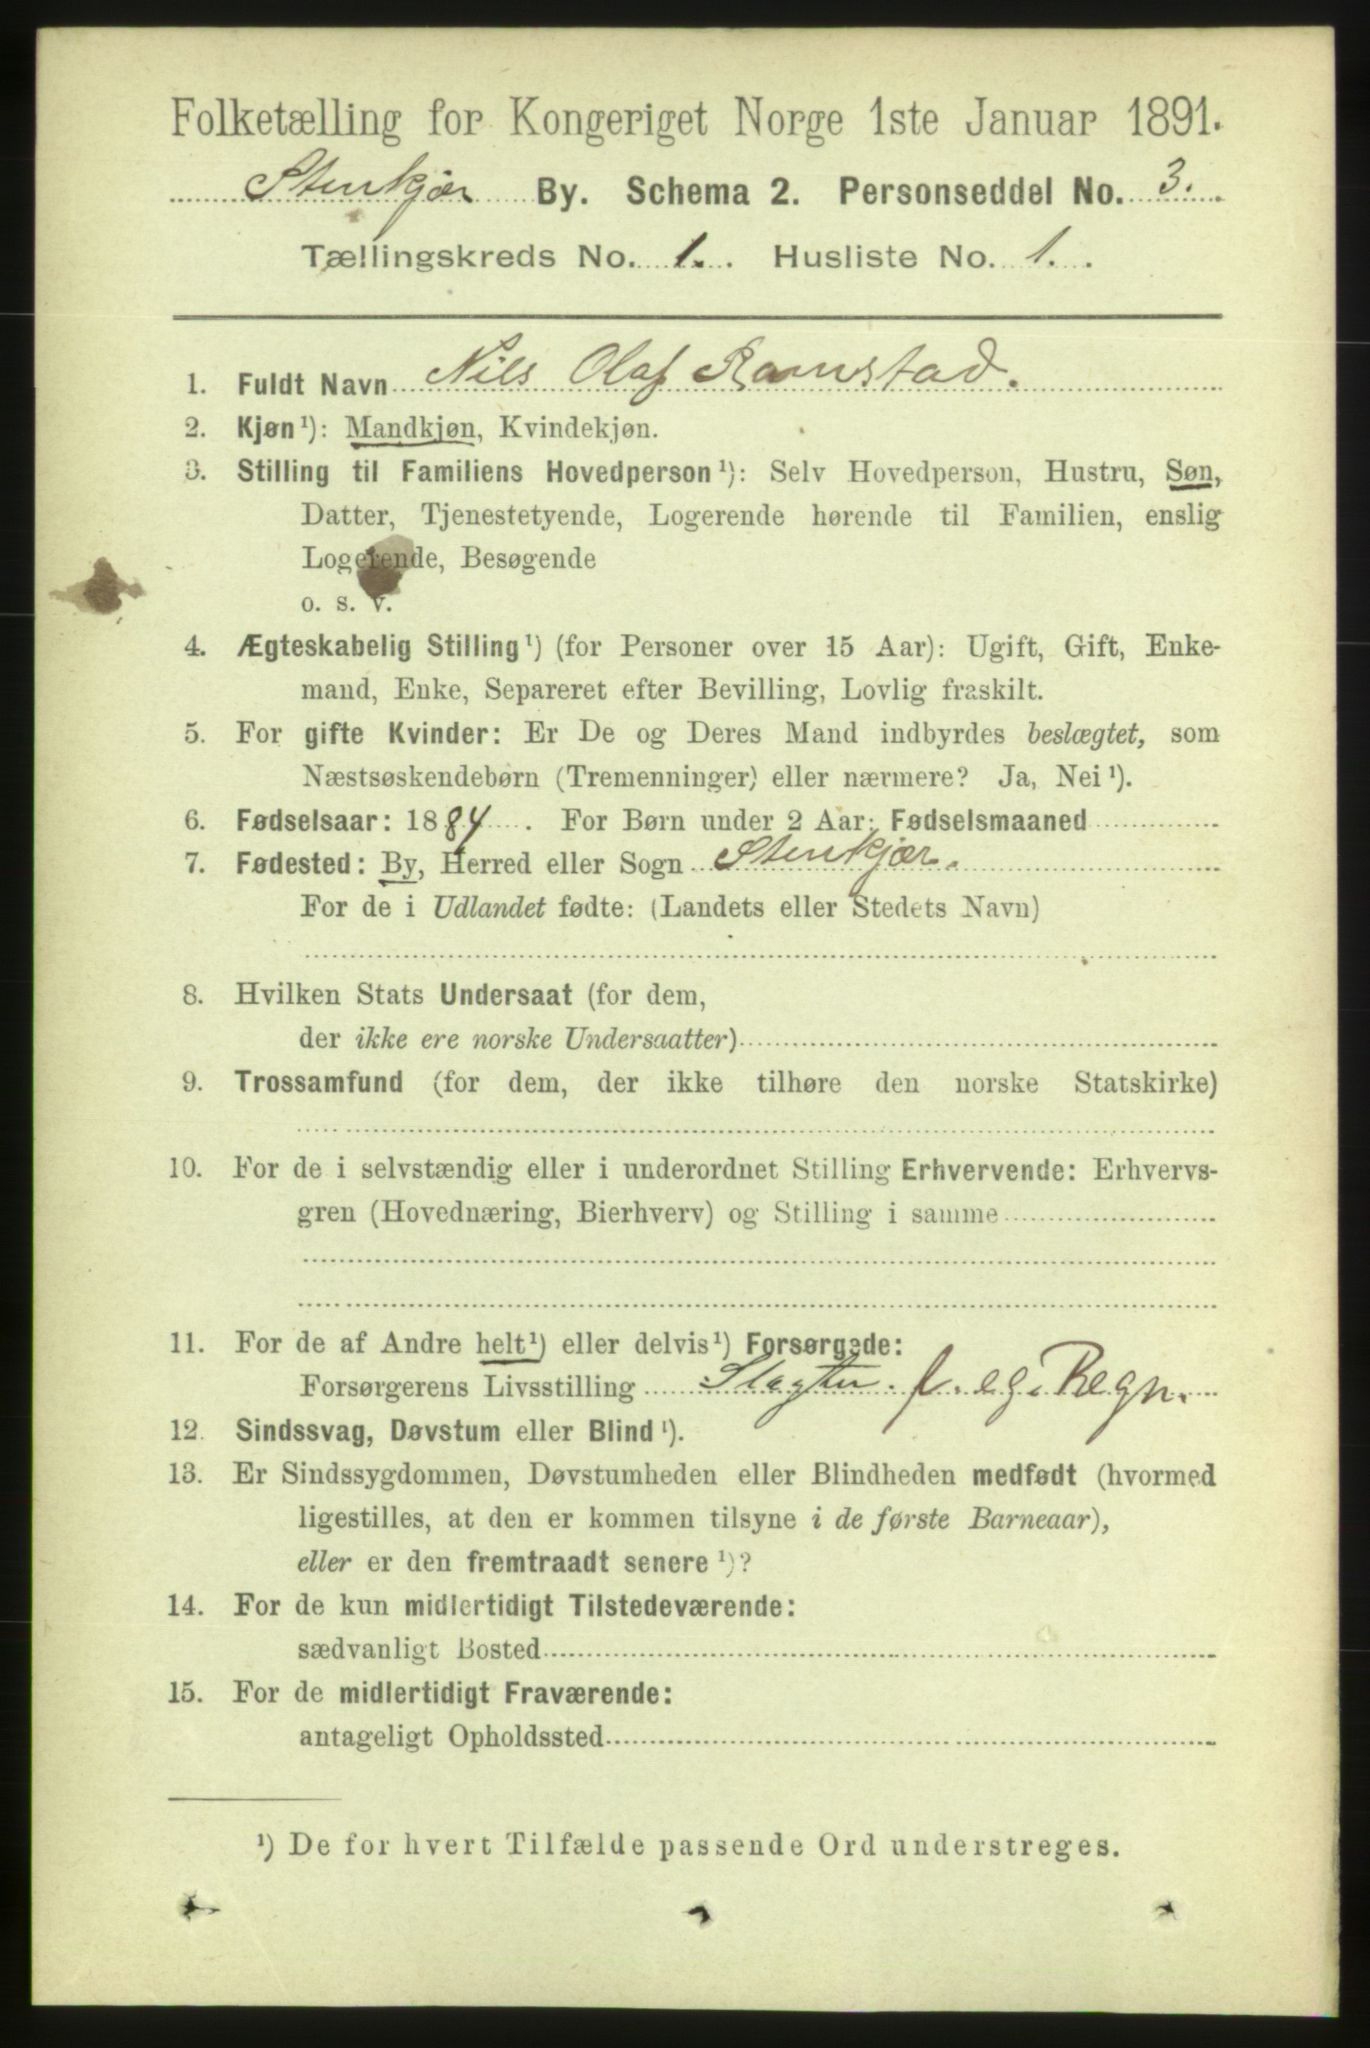 Folketælling for Kongeriget Norge 1ste Januar 1891.
Stenkjær By. Schema 2. Personseddel No. 3.
Tællingskreds No. 1. Husliste No. 1.
1. Fuldt Navn Nils Olaf Ramstad.
2. Kjøn¹): Mandkjøn, Kvindekjøn.
3. Stilling til Familiens Hovedperson¹): Selv Hovedperson, Hustru, Søn,
Datter, Tjenestetyende, Logerende hørende til Familien, enslig
Logerende, Besøgende
o. s. v.
4. Ægteskabelig Stilling¹) (for Personer over 15 Aar): Ugift, Gift, Enke-
mand, Enke, Separeret efter Bevilling, Lovlig fraskilt.
5. For gifte Kvinder: Er De og Deres Mand indbyrdes beslægtet, som
Næstsøskendebørn (Tremenninger) eller nærmere? Ja, Nei¹).
6. Fødselsaar: 1884. For Børn under 2 Aar: Fødselsmaaned
7. Fødested: By, Herred eller Sogn Stenkjær.
For de i Udlandet fødte: (Landets eller Stedets Navn)
8. Hvilken Stats Undersaat (for dem,
der ikke ere norske Undersaatter)
9. Trossamfund (for dem, der ikke tilhøre den norske Statskirke)
10. For de i selvstændig eller i underordnet Stilling Erhvervende: Erhvervs-
gren (Hovednæring, Bierhverv) og Stilling i samme
11. For de af Andre helt¹) eller delvis¹) Forsørgede:
Forsørgerens Livsstilling Slagter. f. eg. Regn.
12. Sindssvag, Døvstum eller Blind¹).
13. Er Sindssygdommen, Døvstumheden eller Blindheden medfødt (hvormed
ligestilles, at den er kommen tilsyne i de første Barneaar),
eller er den fremtraadt senere¹)?
14. For de kun midlertidigt Tilstedeværende:
sædvanligt Bosted
15. For de midlertidigt Fraværende:
antageligt Opholdssted
¹) De for hvert Tilfælde passende Ord understreges.